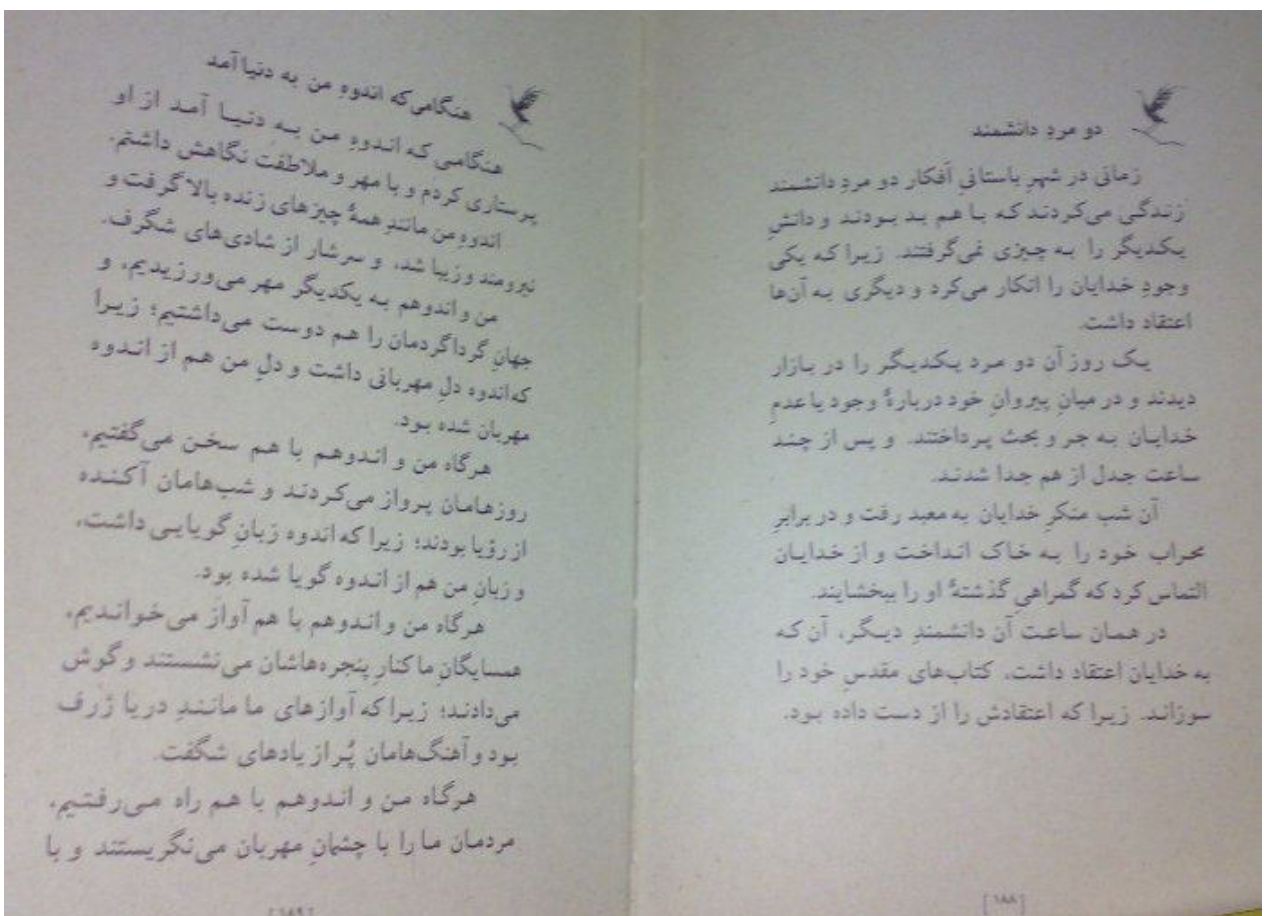 دو مردِ دانشمند
زمانی در شهرِ باستانیِ اَفکار دو مردِ دانشمند
زندگی می‌کردند که با هم بد بودند و دانشِ
یکدیگر را به چیزی نمی‌گرفتند. زیرا که یکی
وجودِ خدایان را انکار می‌کرد و دیگری به آن‌ها
اعتقاد داشت.
یک روز آن دو مرد یکدیگر را در بازار
دیدند و در میانِ پیروانِ خود دربارهٔ وجود یا عدمِ
خدایان به جر و بحث پرداختند. و پس از چند
ساعت جدل از هم جدا شدند.
آن شب منکرِ خدایان به معبد رفت و در برابرِ
محراب خود را به خاک انداخت و از خدایان
التماس کرد که گمراهیِ گذشتهٔ او را ببخشایند.
در همان ساعت آن دانشمندِ دیگر، آن که
به خدایان اعتقاد داشت، کتاب‌های مقدسِ خود را
سوزاند. زیرا که اعتقادش را از دست داده بود.
[۱۸۸]
هنگامی‌که اندوهِ من به دنیا آمد
هنگامی که اندوهِ من به دنیا آمد از او
پرستاری کردم و با مهر و ملاطفت نگاهش داشتم.
اندوهِ من مانندِ همهٔ چیزهای زنده بالا گرفت و
نیرومند و زیبا شد، و سرشار از شادی‌های شگرف.
من و اندوهم به یکدیگر مهر می‌ورزیدیم، و
جهانِ گرداگردمان را هم دوست می‌داشتیم؛ زیرا
که اندوه دلِ مهربانی داشت و دلِ من هم از اندوه
مهربان شده بود.
هرگاه من و اندوهم با هم سخن می‌گفتیم،
روزهامان پرواز می‌کردند و شب‌هامان آکنده
از رؤیا بودند؛ زیرا که اندوه زبانِ گویایی داشت،
و زبانِ من هم از اندوه گویا شده بود.
هرگاه من و اندوهم با هم آواز می‌خواندیم،
همسایگانِ ما کنارِ پنجره‌هاشان می‌نشستند و گوش
می‌دادند؛ زیرا که آوازهای ما مانندِ دریا ژرف
بود و آهنگ‌هامان پُر از یادهای شگفت.
هرگاه من و اندوهم با هم راه می‌رفتیم،
مردمان ما را با چشمانِ مهربان می‌نگریستند و با
[۱۸۹]